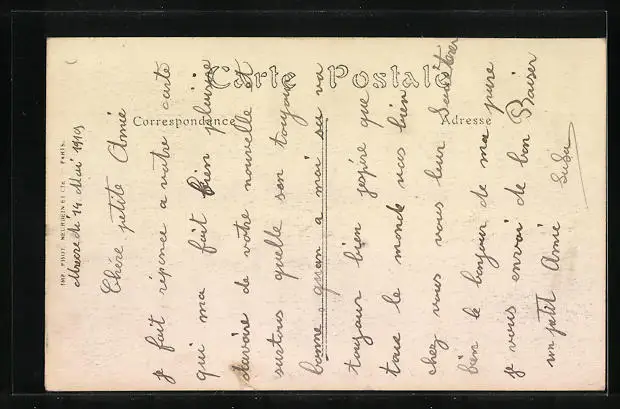 Carte Postale
Correspondance
Adresse
IMP. PHOT. NEURDEIN ET Cie. PARIS.
Mecredi 14 Mai 1919
Chére petite Amie
je fait réponce a votre carte
qui ma fait bien plaisire
davoire de votre nouvelle et
surtous quelle son toujour
bonne, quan a moi sa va
toujour bien jespére que
tous le monde vas bien
chez vous vous leur
bien le bonjour de ma pare
je vous envoi de bon Baiser
un petit Amie